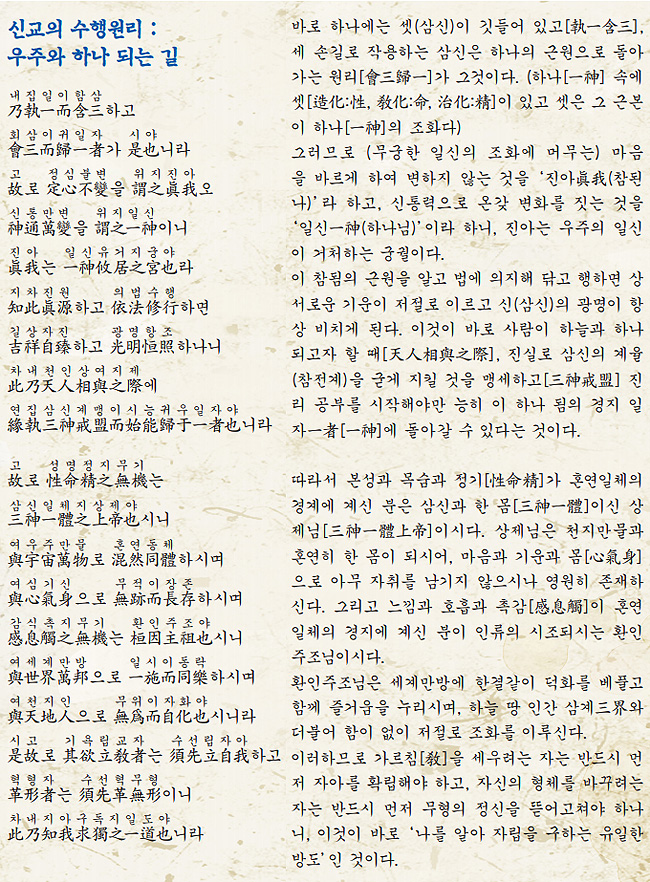 신교의 수행원리 :
우주와 하나 되는 길
내 집 일 이 함 삼
乃執一而含三하고
회 삼 이 귀 일 자 시 야
會三而歸一者가 是也니라
고 정 심 불 변 위 지 진 아
故로 定心不變을 謂之眞我오
신 통 만 변 위 지 일 신
神通萬變을 謂之一神이니
진 아 일 신 유 거 지 궁 야
眞我는 一神攸居之宮也라
지 차 진 원 의 법 수 행
知此眞源하고 依法修行하면
길 상 자 진 광 명 항 조
吉祥自臻하고 光明恒照하나니
차 내 천 인 상 여 지 제
此乃天人相與之際에
연 집 삼 신 계 맹 이 시 능 귀 우 일 자 야
緣執三神戒盟而始能歸于一者也니라
고 성 명 정 지 무 기
故로 性命精之無機는
삼 신 일 체 지 상 제 야
三神一體之上帝也시니
여 우 주 만 물 혼 연 동 체
與宇宙萬物로 混然同體하시며
여 심 기 신 무 적 이 장 존
與心氣身으로 無跡而長存하시며
감 식 촉 지 무 기 환 인 주 조 야
感息觸之無機는 桓因主祖也시니
여 세 계 만 방 일 시 이 동 락
與世界萬邦으로 一施而同樂하시며
여 천 지 인 무 위 이 자 화 야
與天地人으로 無爲而自化也시니라
시 고 기 욕 립 교 자 수 선 립 자 아
是故로 其欲立敎者는 須先立自我하고
혁 형 자 수 선 혁 무 형
革形者는 須先革無形이니
차 내 지 아 구 독 지 일 도 야
此乃知我求獨之一道也니라
바로 하나에는 셋(삼신)이 깃들어 있고[執一含三],
세 손길로 작용하는 삼신은 하나의 근원으로 돌아
가는 원리[會三歸一]가 그것이다. (하나[一神] 속에
셋[造化:性, 敎化:命, 治化:精]이 있고 셋은 그 근본
이 하나[一神]의 조화다)
그러므로 (무궁한 일신의 조화에 머무는) 마음
을 바르게 하여 변하지 않는 것을 ‘진아眞我(참된
나)’라 하고, 신통력으로 온갖 변화를 짓는 것을
‘일신一神(하나님)’이라 하니, 진아는 우주의 일신
이 거처하는 궁궐이다.
이 참됨의 근원을 알고 법에 의지해 닦고 행하면 상
서로운 기운이 저절로 이르고 신(삼신)의 광명이 항
상 비치게 된다. 이것이 바로 사람이 하늘과 하나
되고자 할 때[天人相與之際], 진실로 삼신의 계율
(참전계)을 굳게 지킬 것을 맹세하고[三神戒盟] 진
리 공부를 시작해야만 능히 이 하나 됨의 경지 일
자一者[一神]에 돌아갈 수 있다는 것이다.
따라서 본성과 목숨과 정기[性命精]가 혼연일체의
경계에 계신 분은 삼신과 한 몸[三神一體]이신 상
제님[三神一體上帝]이시다. 상제님은 천지만물과
혼연히 한 몸이 되시어, 마음과 기운과 몸[心氣身]
으로 아무 자취를 남기지 않으시나 영원히 존재하
신다. 그리고 느낌과 호흡과 촉감[感息觸]이 혼연
일체의 경지에 계신 분이 인류의 시조되시는 환인
주조님이시다.
환인주조님은 세계만방에 한결같이 덕화를 베풀고
함께 즐거움을 누리시며, 하늘 땅 인간 삼계三界와
더불어 함이 없이 저절로 조화를 이루신다.
이러하므로 가르침[敎]을 세우려는 자는 반드시 먼
저 자아를 확립해야 하고, 자신의 형체를 바꾸려는
자는 반드시 먼저 무형의 정신을 뜯어고쳐야 하나
니, 이것이 바로 ‘나를 알아 자립을 구하는 유일한
방도’인 것이다.